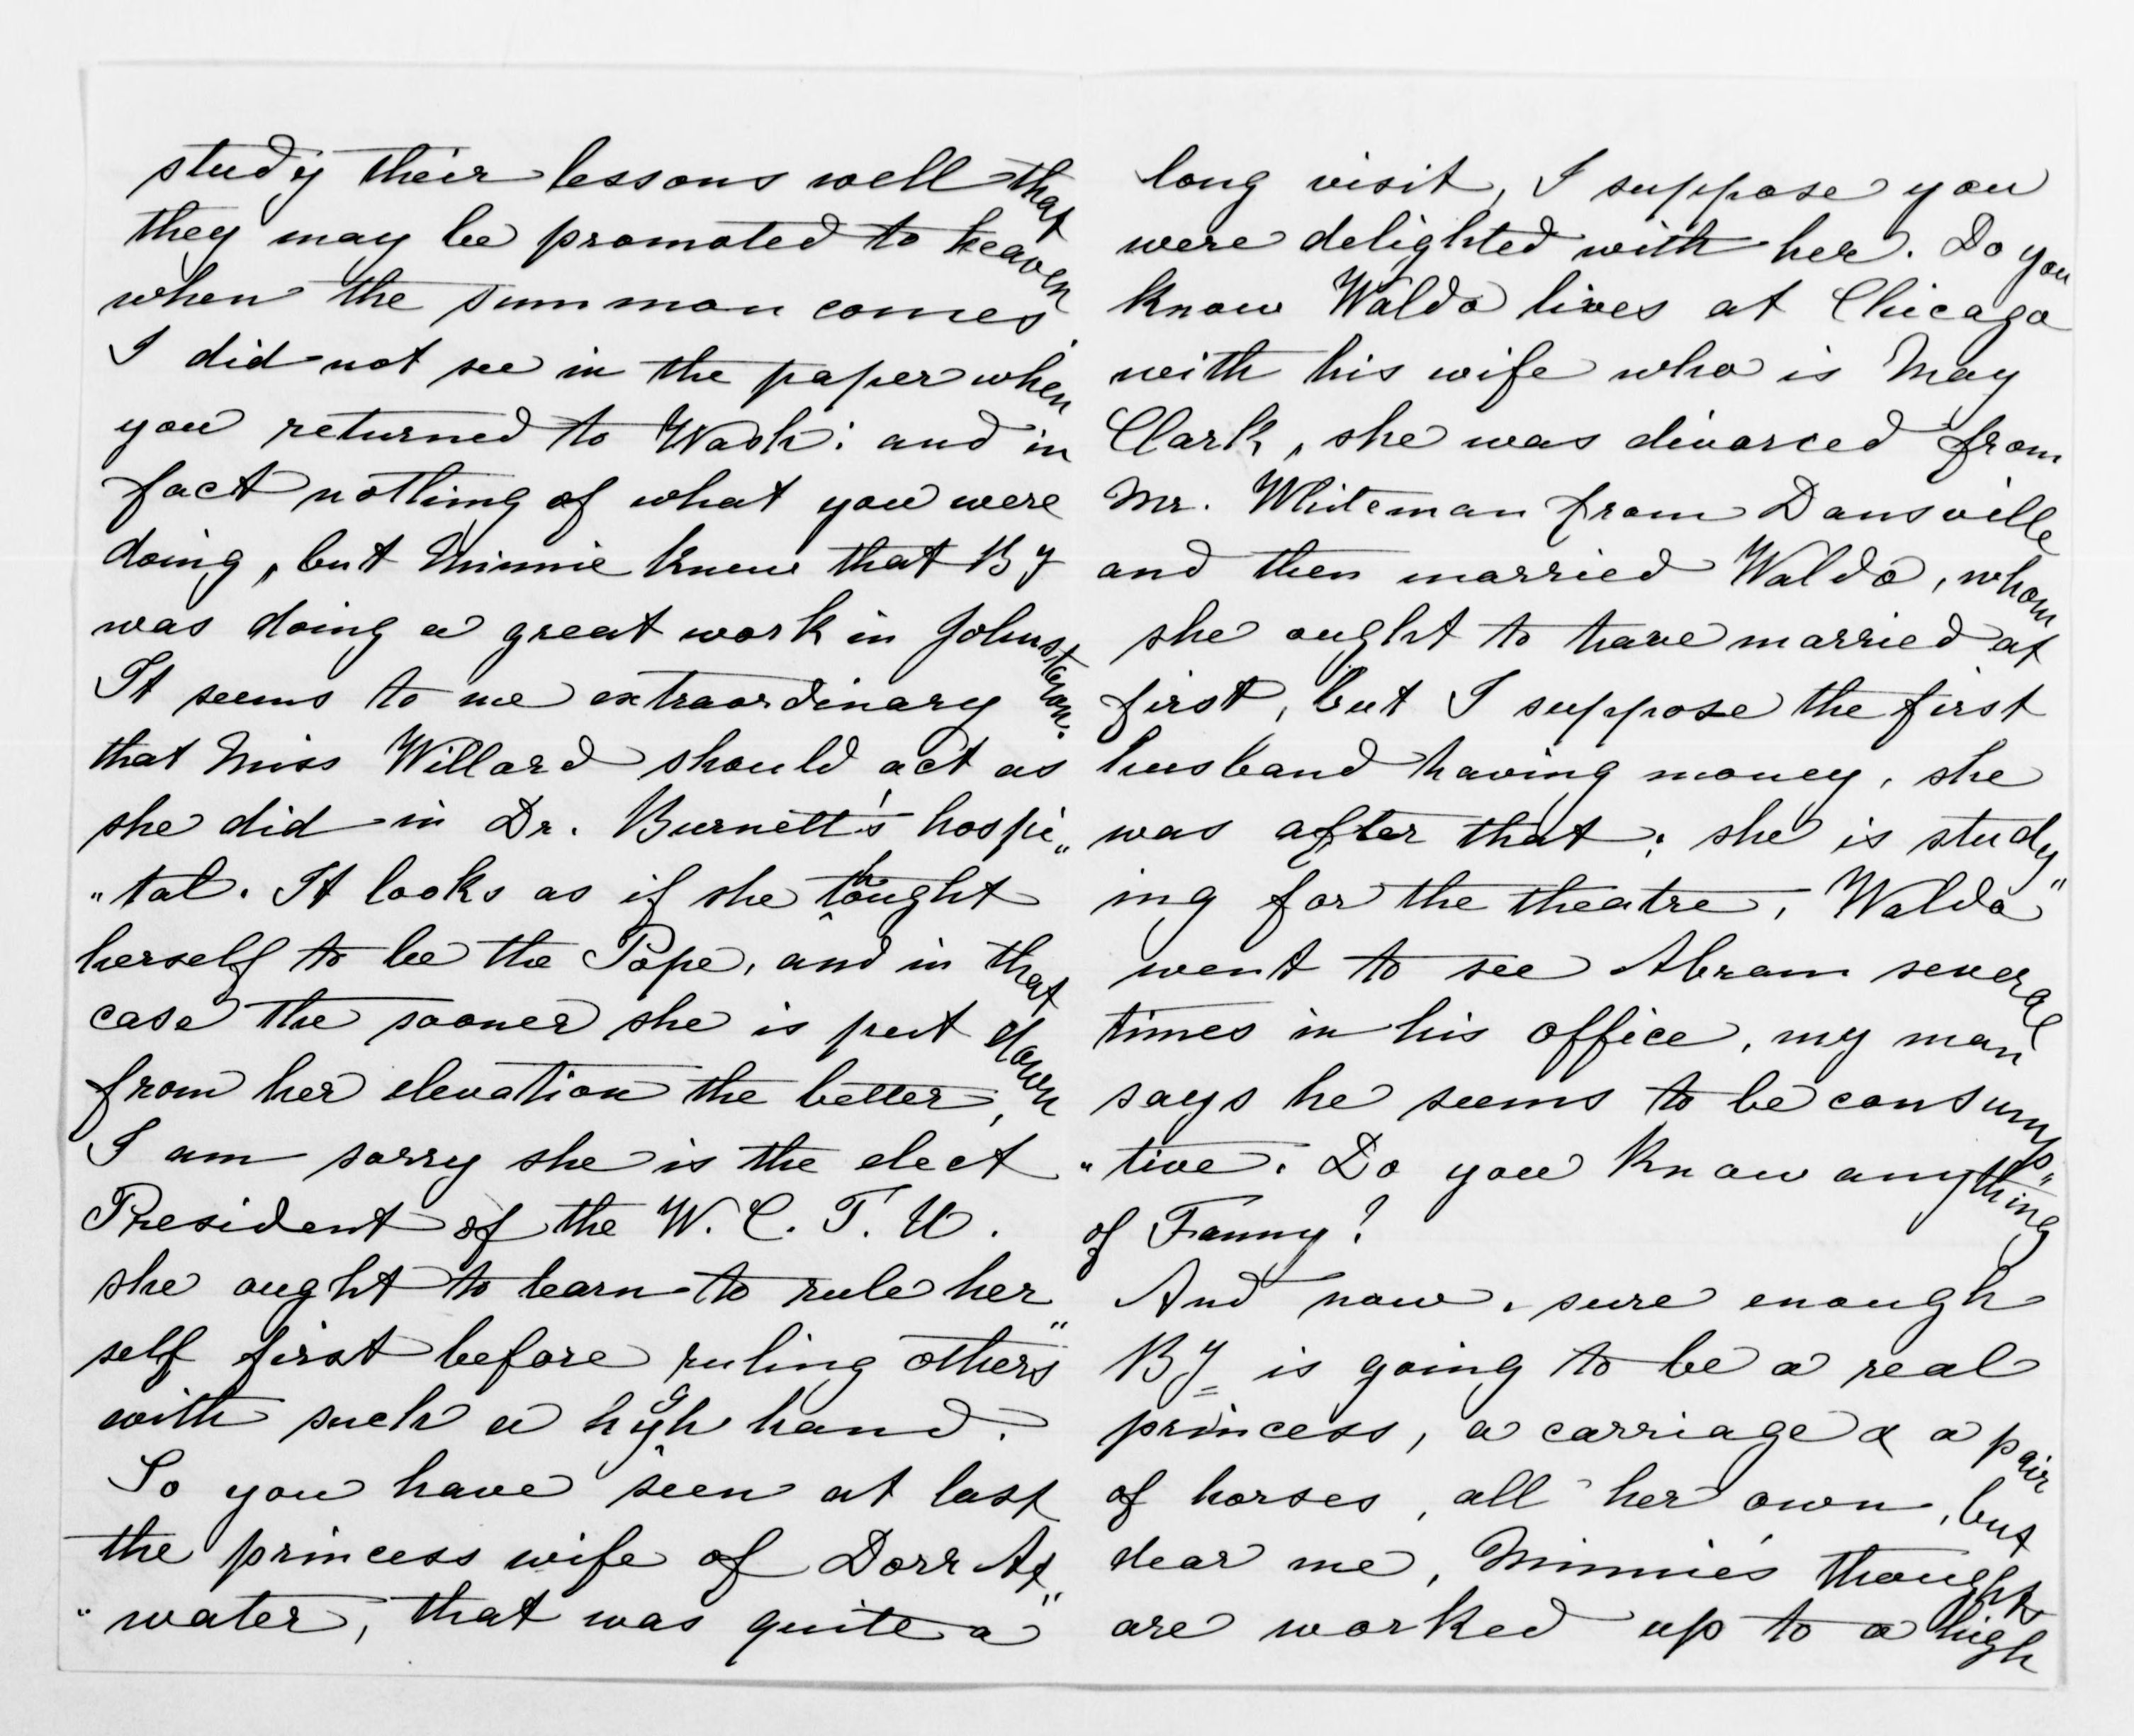 study their lessons well that
they may be promoted to heaven
when the summon comes.
I did not see in the paper when
you returned to Wash: and in
fact nothing of what you were
doing, but Minnie knew that By
was doing a great work in Johnstown.
It seems to me extraordinary
that Miss Willard should act as
she did in Dr. Burnett's hospi„
„tal. It looks as if she thought
herself to be the Pope, and in that
case the sooner she is put down
from her elevation the better,
I am sorry she is the elect
President of the W. C. T. U.
she ought to learn to rule her„
self first before ruling others
with such a high hand.
So you have seen at last
the princess wife of Dorr At„
„water, that was quite a
long visit, I suppose you
were delighted with her. Do you
know Waldo lives at Chicago
with his wife who is May
Clark, she was divorced from
Mr. Whiteman from Dansville
and then married Waldo, whom
she ought to have married at
first, but I suppose the first
husband having money, she
was after that; she is study„
ing for the theatre, Waldo
went to see Abram several
times in his office, my man
says he seems to be consump„
„tive. Do you know anything
of Fanny?
And now, sure enough
By is going to be a real
princess, a carriage & a pair
of horses, all her own, but
dear me, Minnie's thoughts
are worked up to a high